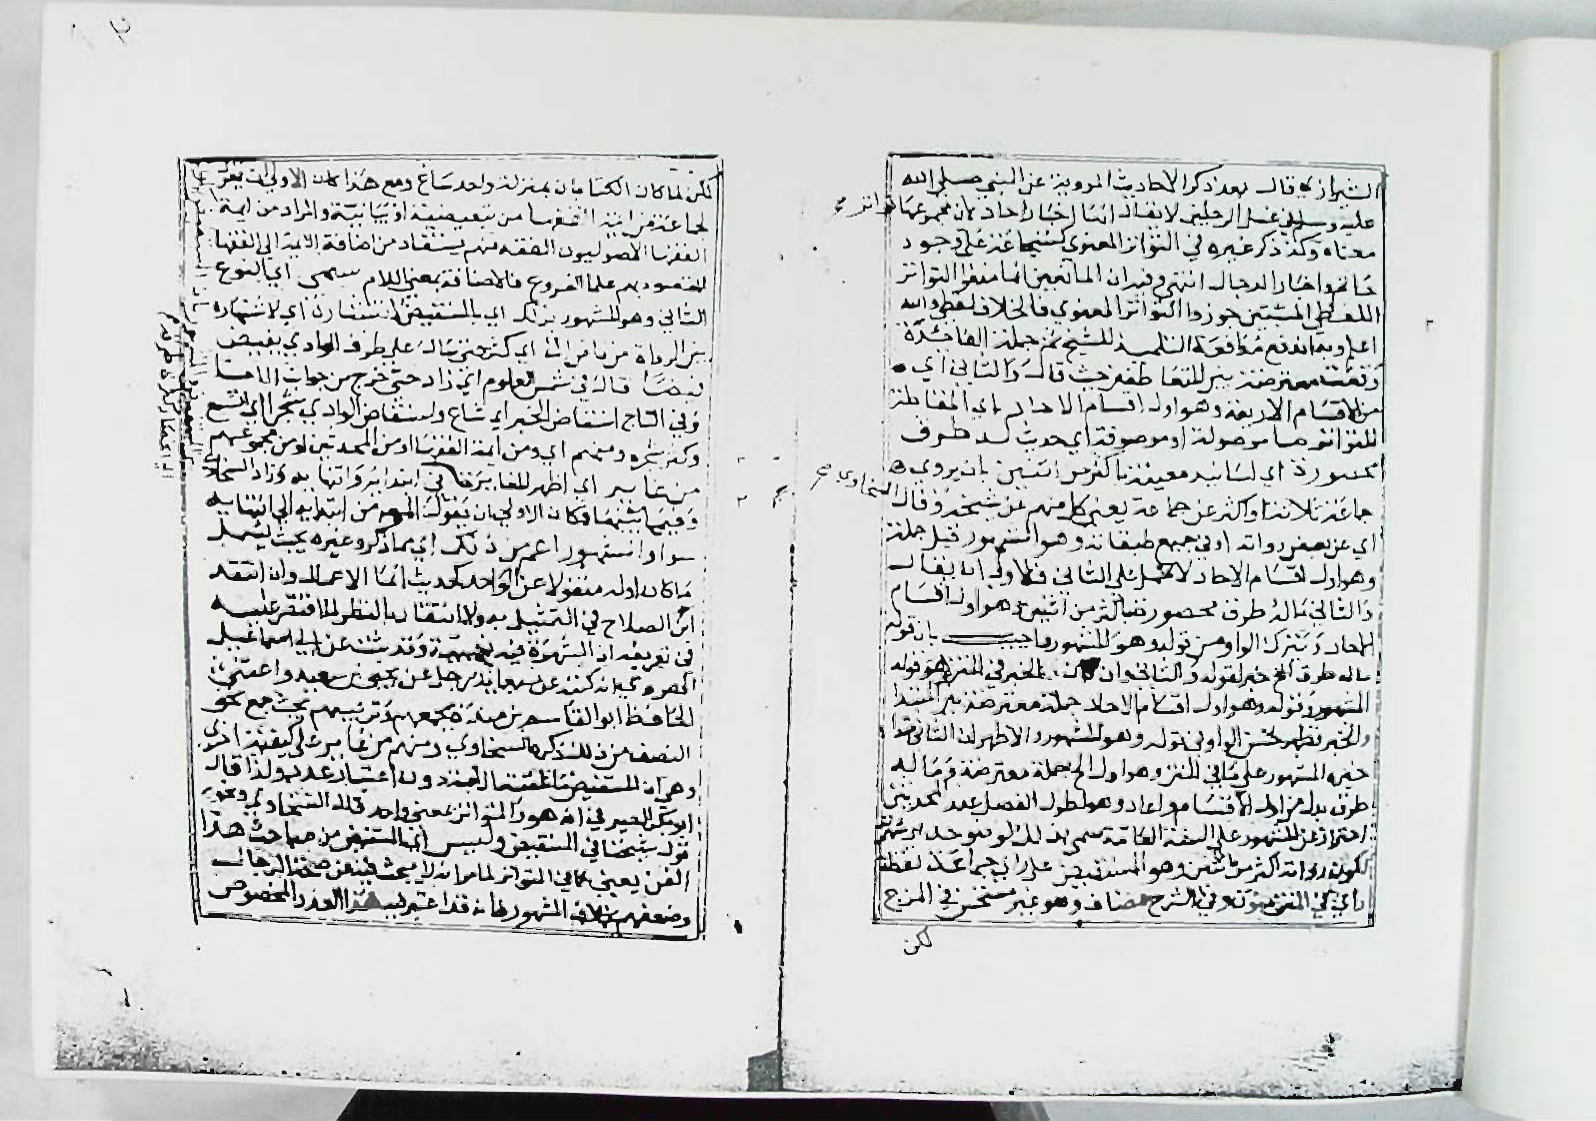 الشيرازي قال بعد ذكر الاحاديث المروية عن النبي صلى الله
عليه وسلم في غسل الرجلين لا يقال انها اخبار احاد لان مجموعها تواتر
معناه وكذا ذكر غيره في التواتر المعنوي كشجاعة علي وجود
حاتم واخبار الدجال انتهى وفيه ان المانعين انما منعوا التواتر
اللفظي المثبتين جوزوا التواتر المعنوي فالخلاف لفظي والله
اعلم وبه اندفع التلميذ للشيخ جملة الفائدة
وقعت معترضة بين المتعاطفين حيث قال والثاني اي
من الاقسام الاربعة وهو اول اقسام الاحاد اي
للمتواتر ما موصولة او موصوفة اي حديث له طرف
محصورة اي اسانيد معينة باكثر من اثنين بان يروي
جماعة ثلاثة او اكثر عن جماعة يعني كل منهم عن شيخه وقال السخاوي
اي عن بعض رواته او في جميع طبقاته وهو المشهور قيل جملة
وهو اول اقسام الاحاد لا تحمل على الثاني فالاولى ان يقال
والثاني ماله طرق محصورة باكثر من اثنين وهو اول اقسام
الاحاد وترك الواو من قوله وهو المشهور واجيب بان قوله
ماله طرق الخ خبر لقوله والثاني وان كان الخبر في المتن هو قوله
المشهور وقوله وهو اول اقسام الاحاد جملة معترضة بين المبتدا
والخبر الواو في قوله وهو المشهور والاظهر ان الثاني مبتدا
خبره المشهور على ما في المتن وهو اول الخ جملة معترضة وماله
طرق بدل من اول الاقسام واعاد وهو لطول الفصل عند المحدثين
احتراز عن المشهور على السنة العامة سمي بذلك
لكون رواته اكثر من اثنين وهو المستفيض على راي جماعة لفظة
راي في المتن منون وفي الشرح مضاف وهو غير مستحسن في المزج
لكن
لكن لما كان الكتابان بمنزلة واحد ساغ ومع هذا كان الاولى ان يقول
لجماعة من ايمة الفقها من تبعيضية او بيانية والمراد من ايمة
الفقها الاصوليون الفقه منهم يستفاد من اضافة الايمة الى الفقها
المقصود بهم علما الفروع فالاضافة بمعنى اللام سمي اي النوع
الثاني وهو المشهور بذلك اي بالمستفيض لانتشاره اي لاشتهاره
بين الرواة من فاض الماء اي كثر حتى سال على طرف الوادي يفيض
فيضا قال في شمس العلوم اي زاد حتى خرج من جوانب الاناء
وفي التاج استفاض الخبر اي شاع واستفاض الوادي شجرا اي اتسع
وكثر شجره ومنهم اي ومن ايمة الفقها او من المحدثين او من مجموعهم
من غاير اي اظهر المغايرة في ابتدائه وانتهائه وزاد السخاوي
وفيما بينهما فكان الاولى ان يقول المص من ابتدائه الى انتهائه
سواء والمشهور اعم من ذلك اي مما ذكر وغيره بحيث يشمل
ما كان اوله منقولا عن الواحد كحديث انما الاعمال وان انتقد
ابن الصلاح في التمثيل به ولا انتقاد بالنظر لما اقتصر عليه
في تعريفه اذ الشهرة فيه نسبية وقد ثبت عن ابي اسماعيل
الهروي انه كتبه عن سبعمائة رجل عن يحيى بن سعيد واعتنى
الحافظ ابو القاسم بن مندة بجمعهم وترتيبهم بحيث جمع نحو
النصف من ذلك ذكره السخاوي ومنهم من غاير على كيفية اخرى
وهو ان المستفيض ما تلقته الامة دون اعتبار عدد ولذا قال
ابو بكر الصيرفي انه هو والمتواتر بمعنى واحد قاله السخاوي ونحوه
قول شيخنا في المستفيض وليس اي المستفيض من مباحث هذا
الفن يعني كما في المتواتر لما مر انه لا يبحث فيه عن صحة الرجال
وضعفهم بخلاف المشهور فانه قد اعتبر فيه هذا العدد المخصوص